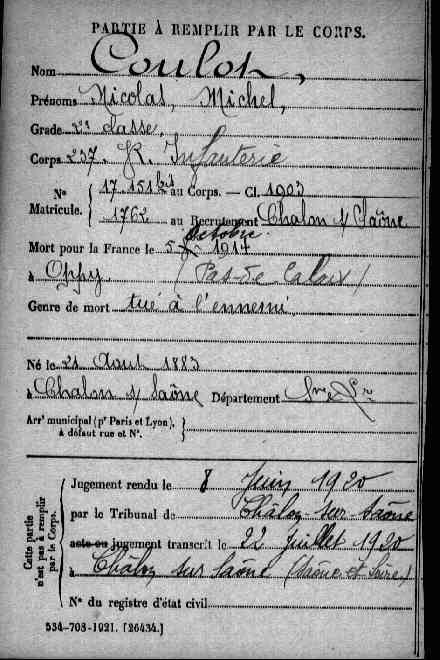 PARTIE À REMPLIR PAR LE CORPS.
Nom Coulon,
Prénoms Nicolas, Michel,
Grade 2e classe.
Corps 237. R. Infanterie
N° Matricule. { 17.151 bis au Corps. — Cl. 1903
1762 au Recrutement Chalon s/ Saône
Octobre
Mort pour la France le 5 1914
à Oppy (Pas de Calais)
Genre de mort tué à l'ennemi
Né le 21 Aout 1883
à Chalon s/ Saône Département Sne Lre
Arr' municipal (p' Paris et Lyon), à défaut rue et N°. }
Cette partie n'est pas à remplir par le Corps.
Jugement rendu le 8 Juin 1920
par le Tribunal de Châlon sur Saône
acte ou jugement transcrit le 22 Juillet 1920
à Châlon sur Saône (Saône et Loire)
N° du registre d'état civil
534-708-1921. [26434.]